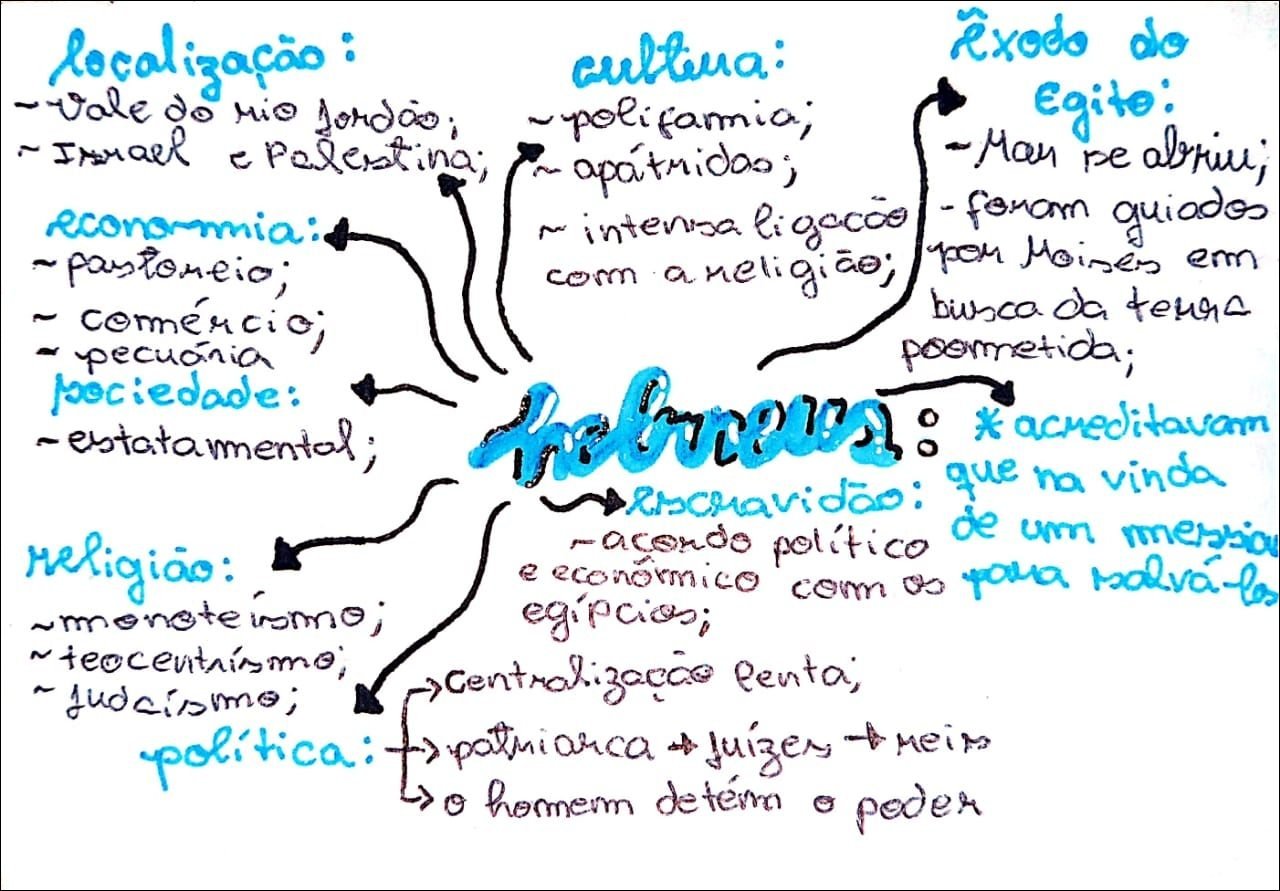 localização:
~ Vale do rio Jordão;
~ Israel e Palestina;
economia:
~ pastoreio;
~ comércio;
~ pecuária
sociedade:
~ estatamental;
religião:
~ monoteísmo;
~ teocentrísmo;
~ Judaísmo;
cultura:
~ poligamia;
~ apátridas;
~ intensa ligação
com a religião;
Êxodo do
Egito:
- Mar se abriu;
- foram guiados
por Moisés em
busca da terra
poormetida;
hebreus:
* acreditavam
que na vinda
de um messias
para salvá-los
escravidão:
~ acordo político
e econômico com os
egípcios;
política:
→ centralização lenta;
→ patriarca → Juízes → reis
→ o homem detém o poder